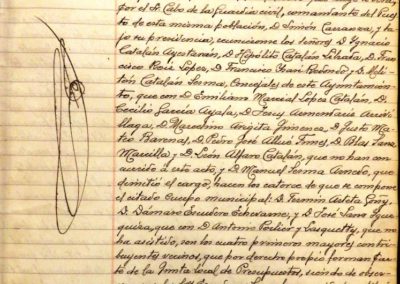 por el Sr. Cabo de la Guardia civil, comandante del Pues-
to de esta misma población, D. Simón Carranza, y ba-
jo su presidencia, reuniéronse los Señores D. Ignacio
Catalán Ayestarán, D. Hipólito Catalán Liñada, D. Fran-
cisco Ruiz Lopez, D. Francisco Obari Redondo, y D. Meli-
tón Catalán Lerma, Concejales de este Ayuntamien-
to, que con D. Emiliano Marcial Lopez Catalán, D.
Cecilio García Ayala, D. Jesus Armentaria
D. Marcelino Argita Jimena, D. Justo Ma-
teo Barenas, D. Pedro José Allué D. Blas Sanz
Marcilla y D. León Alfaro Catalán, que no han con-
currido á este acto y D. Manuel Lerma que
dimitió el cargo, hacen los catorce de que se compone
el citado Cuerpo municipal: D. Fermin Azleta Goñy,
D. Dámaro Escudero Echavarne, y D. José Sanz
que con D. Antonio Pertier y Lasquetty, que no
ha asistido, son los cuatro primeros mayores contri-
buyentes vecinos, que por derecho propio forman par-
te de la Junta local de Presupuestos, siendo de obser-